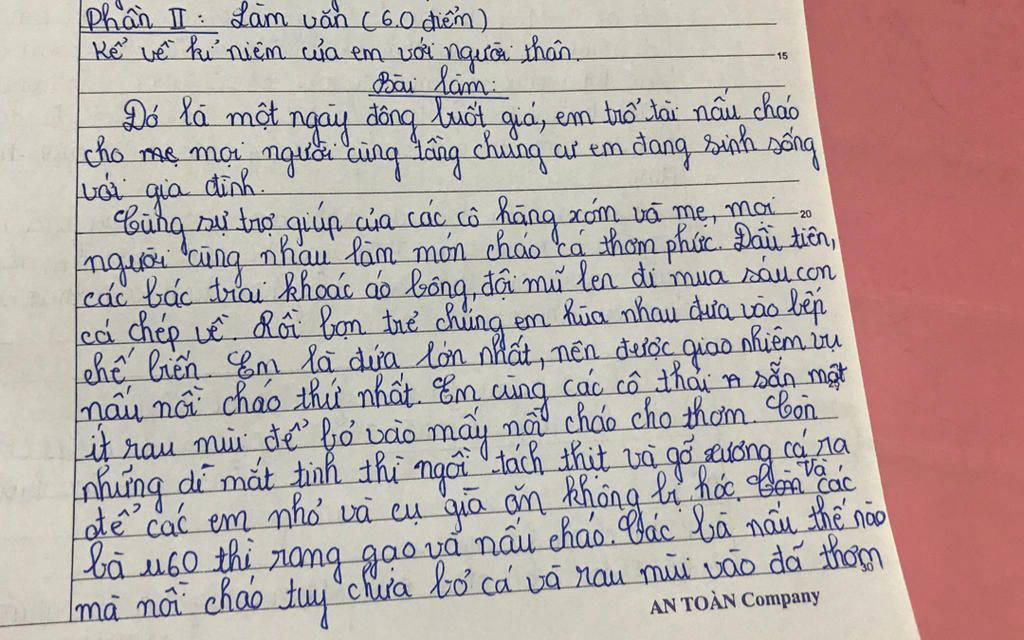 Phần II: Làm văn (6.0 điểm)
Kể về kỉ niệm của em với người thân.
15
Bài làm:
Đó là một ngày đông buốt giá, em trổ tài nấu cháo
cho mẹ mọi người cùng tầng chung cư em đang sinh sống
với gia đình.
Cùng sự trợ giúp của các cô hàng xóm và mẹ, mọi
20
người cùng nhau làm món cháo cá thơm phức. Đầu tiên,
các bác trai khoác áo bông, đội mũ len đi mua sáu con
cá chép về. Rồi bọn trẻ chúng em hùa nhau đưa vào bếp
chế biến. Em là đứa lớn nhất, nên được giao nhiệm vụ
nấu nồi cháo thứ nhất. Em cùng các cô thái sẵn một
ít rau mùi để bỏ vào mấy nồi cháo cho thơm. Còn
những dì mắt tinh thì ngồi tách thịt và gỡ xương cá ra
để các em nhỏ và cụ già ăn không bị hóc. Còn Và các
bà u60 thì rang gạo và nấu cháo. Các bà nấu thế nào
mà nồi cháo tuy chưa bỏ cá và rau mùi vào đã thơm
30
AN TOÀN Company